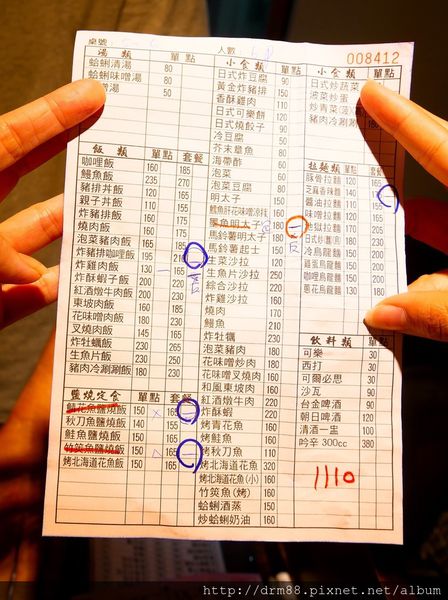 桌號: 人數:
008412
湯類 單點
蛤蜊清湯 80
蛤蜊味噌湯 80
味噌湯 50
飯類 單點 套餐
咖哩飯 160 185
鰻魚飯 235 270
豬排丼飯 150 175
親子丼飯 110 135
炸豬排飯 150 175
燒肉飯 155 180
泡菜豬肉飯 160 185
炸豬排咖哩飯 195 210
炸雞肉飯 130 165
炸酥蝦子飯 220
紅酒燉牛肉飯 220
東坡肉飯
花味噌肉飯
叉燒肉飯 145
炸牡蠣飯 230
生魚片飯 230 250
豬肉冷涮涮飯 150 180
鹽燒定食 單點 套餐
鯖花魚鹽燒飯 150 165
秋刀魚鹽燒飯 140 165
鮭魚鹽燒飯 150 165
竹筴魚鹽燒飯 150 165
烤北海道花魚飯 140 165
小食類 單點
日式炸豆腐 90
黃金炸豬排 150
香酥雞肉 110
日式可樂餅 120
日式燒餃子 90
冷豆腐 50
芥末章魚
海帶醋
泡菜
泡菜豆腐
明太子
鱈魚肝花味噌涼拌
墨魚明太子 180
馬鈴薯明太子 180
馬鈴薯起士
生菜沙拉
生魚片沙拉
綜合沙拉
炸雞沙拉
燒肉
鰻魚
炸牡蠣
泡菜豬肉
花味噌炒肉
花味噌叉燒肉
和風東坡肉
紅酒燉牛肉 220
炸酥蝦 220
烤青花魚
烤鮭魚
烤秋刀魚 110
烤北海道花魚 320
烤北海道花魚(小) 160
竹筴魚(烤) 160
蛤蜊酒蒸 150
炒蛤蜊奶油 160
小食類 單點
日式炒蔬菜
波菜炒蛋
炒青菜
豬肉冷涮涮 180
拉麵類 單點 套餐
豚骨拉麵 120 165
芝麻香辣麵 140
醬油拉麵 110 155
味噌拉麵 120 165
地獄拉麵 160 205
冷烏龍麵
咖哩烏龍麵
蔥花烏龍麵 130
飲料類 單點
可樂 30
西打 30
可爾必思 30
沙瓦 90
台金啤酒 90
朝日啤酒 120
清酒一壼 100
吟辛 300cc 380
1110
http://drm88.pixnet.net/album